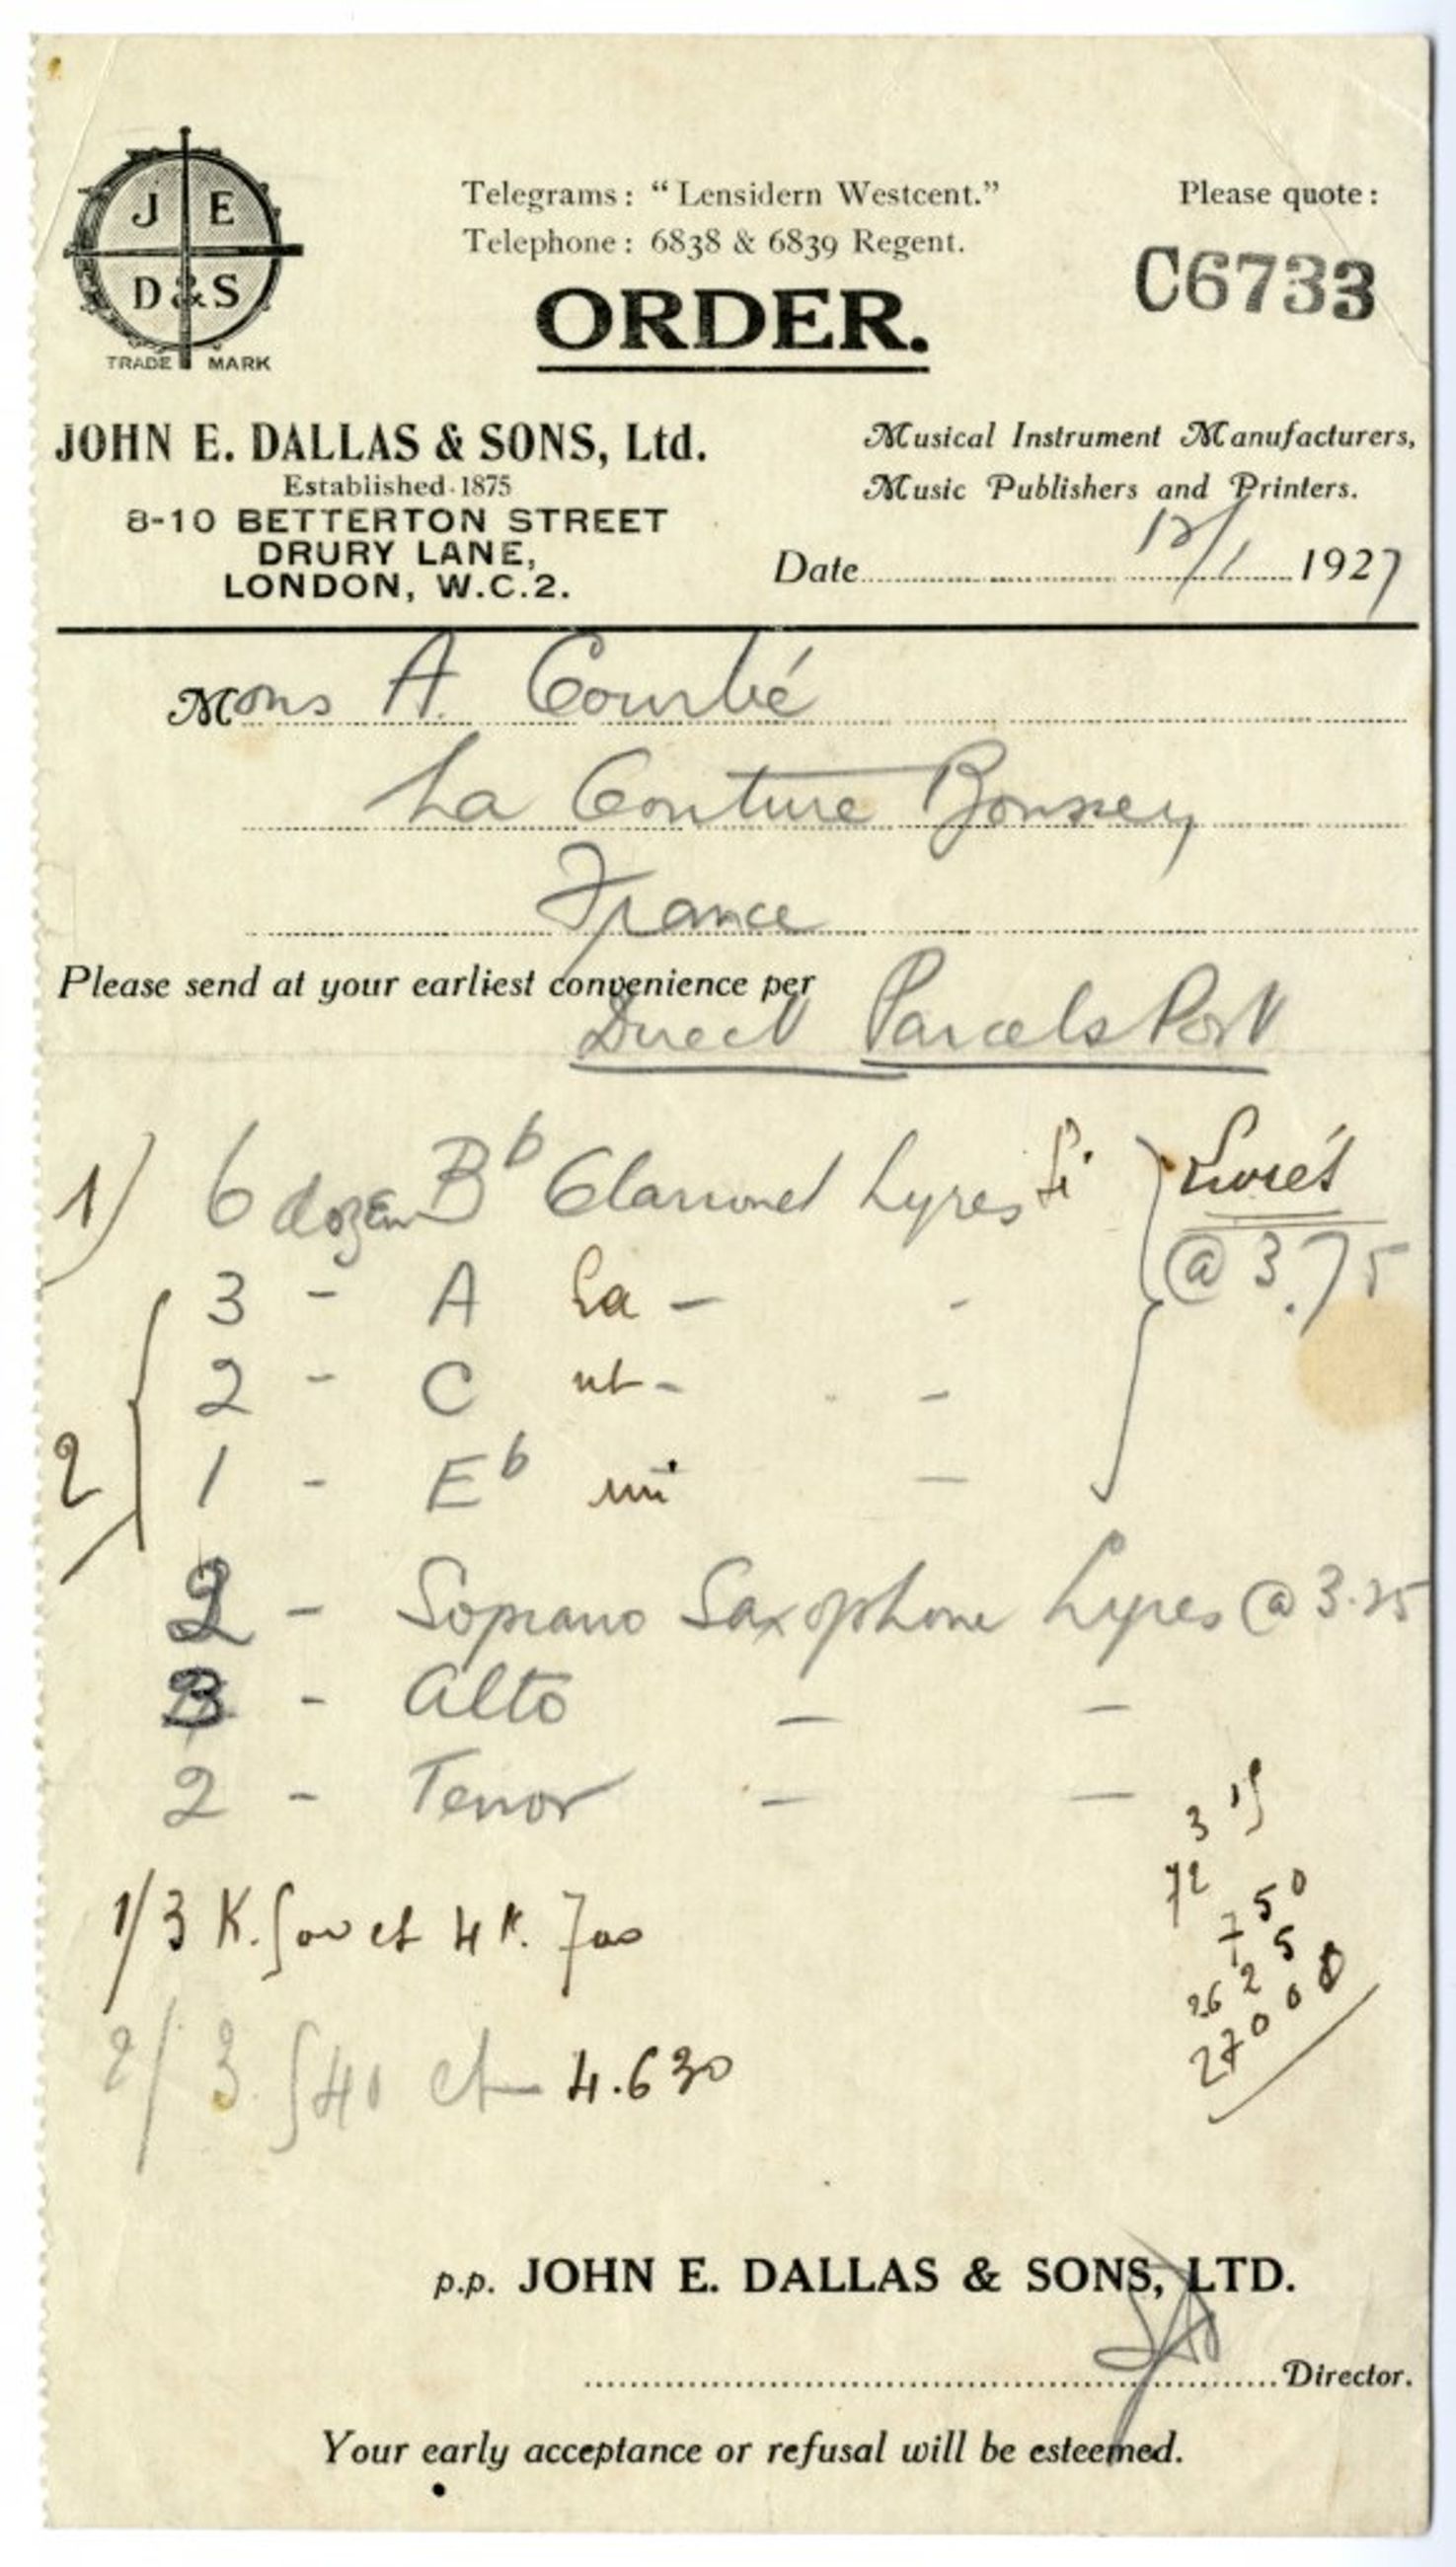 J E
D & S
TRADE MARK
Telegrams: "Lensidern Westcent."
Telephone: 6838 & 6839 Regent.
Please quote:
C6733
ORDER.
JOHN E. DALLAS & SONS, Ltd.
Established 1875
8-10 BETTERTON STREET
DRURY LANE,
LONDON, W.C.2.
Musical Instrument Manufacturers,
Music Publishers and Printers.
Date 12/1 1927
Mons A. Courbé
La Couture Boussey
France
Please send at your earliest convenience per
Direct Parcels Post
1) 6 dozen Bb Clarionet Lyres Si Livrés
@ 3.75
3 - A La - -
2 - C ut - -
2 1 - Eb mi -
2 - Soprano Saxophone Lyres @ 3.25
3 - Alto - -
2 - Tenor - -
3 75
72
1/ 3 K. 500 et 4 K. 700
7 50
262 5
2/ 3.540 et 4.630
270 00
p.p. JOHN E. DALLAS & SONS, LTD.
Director.
Your early acceptance or refusal will be esteemed.